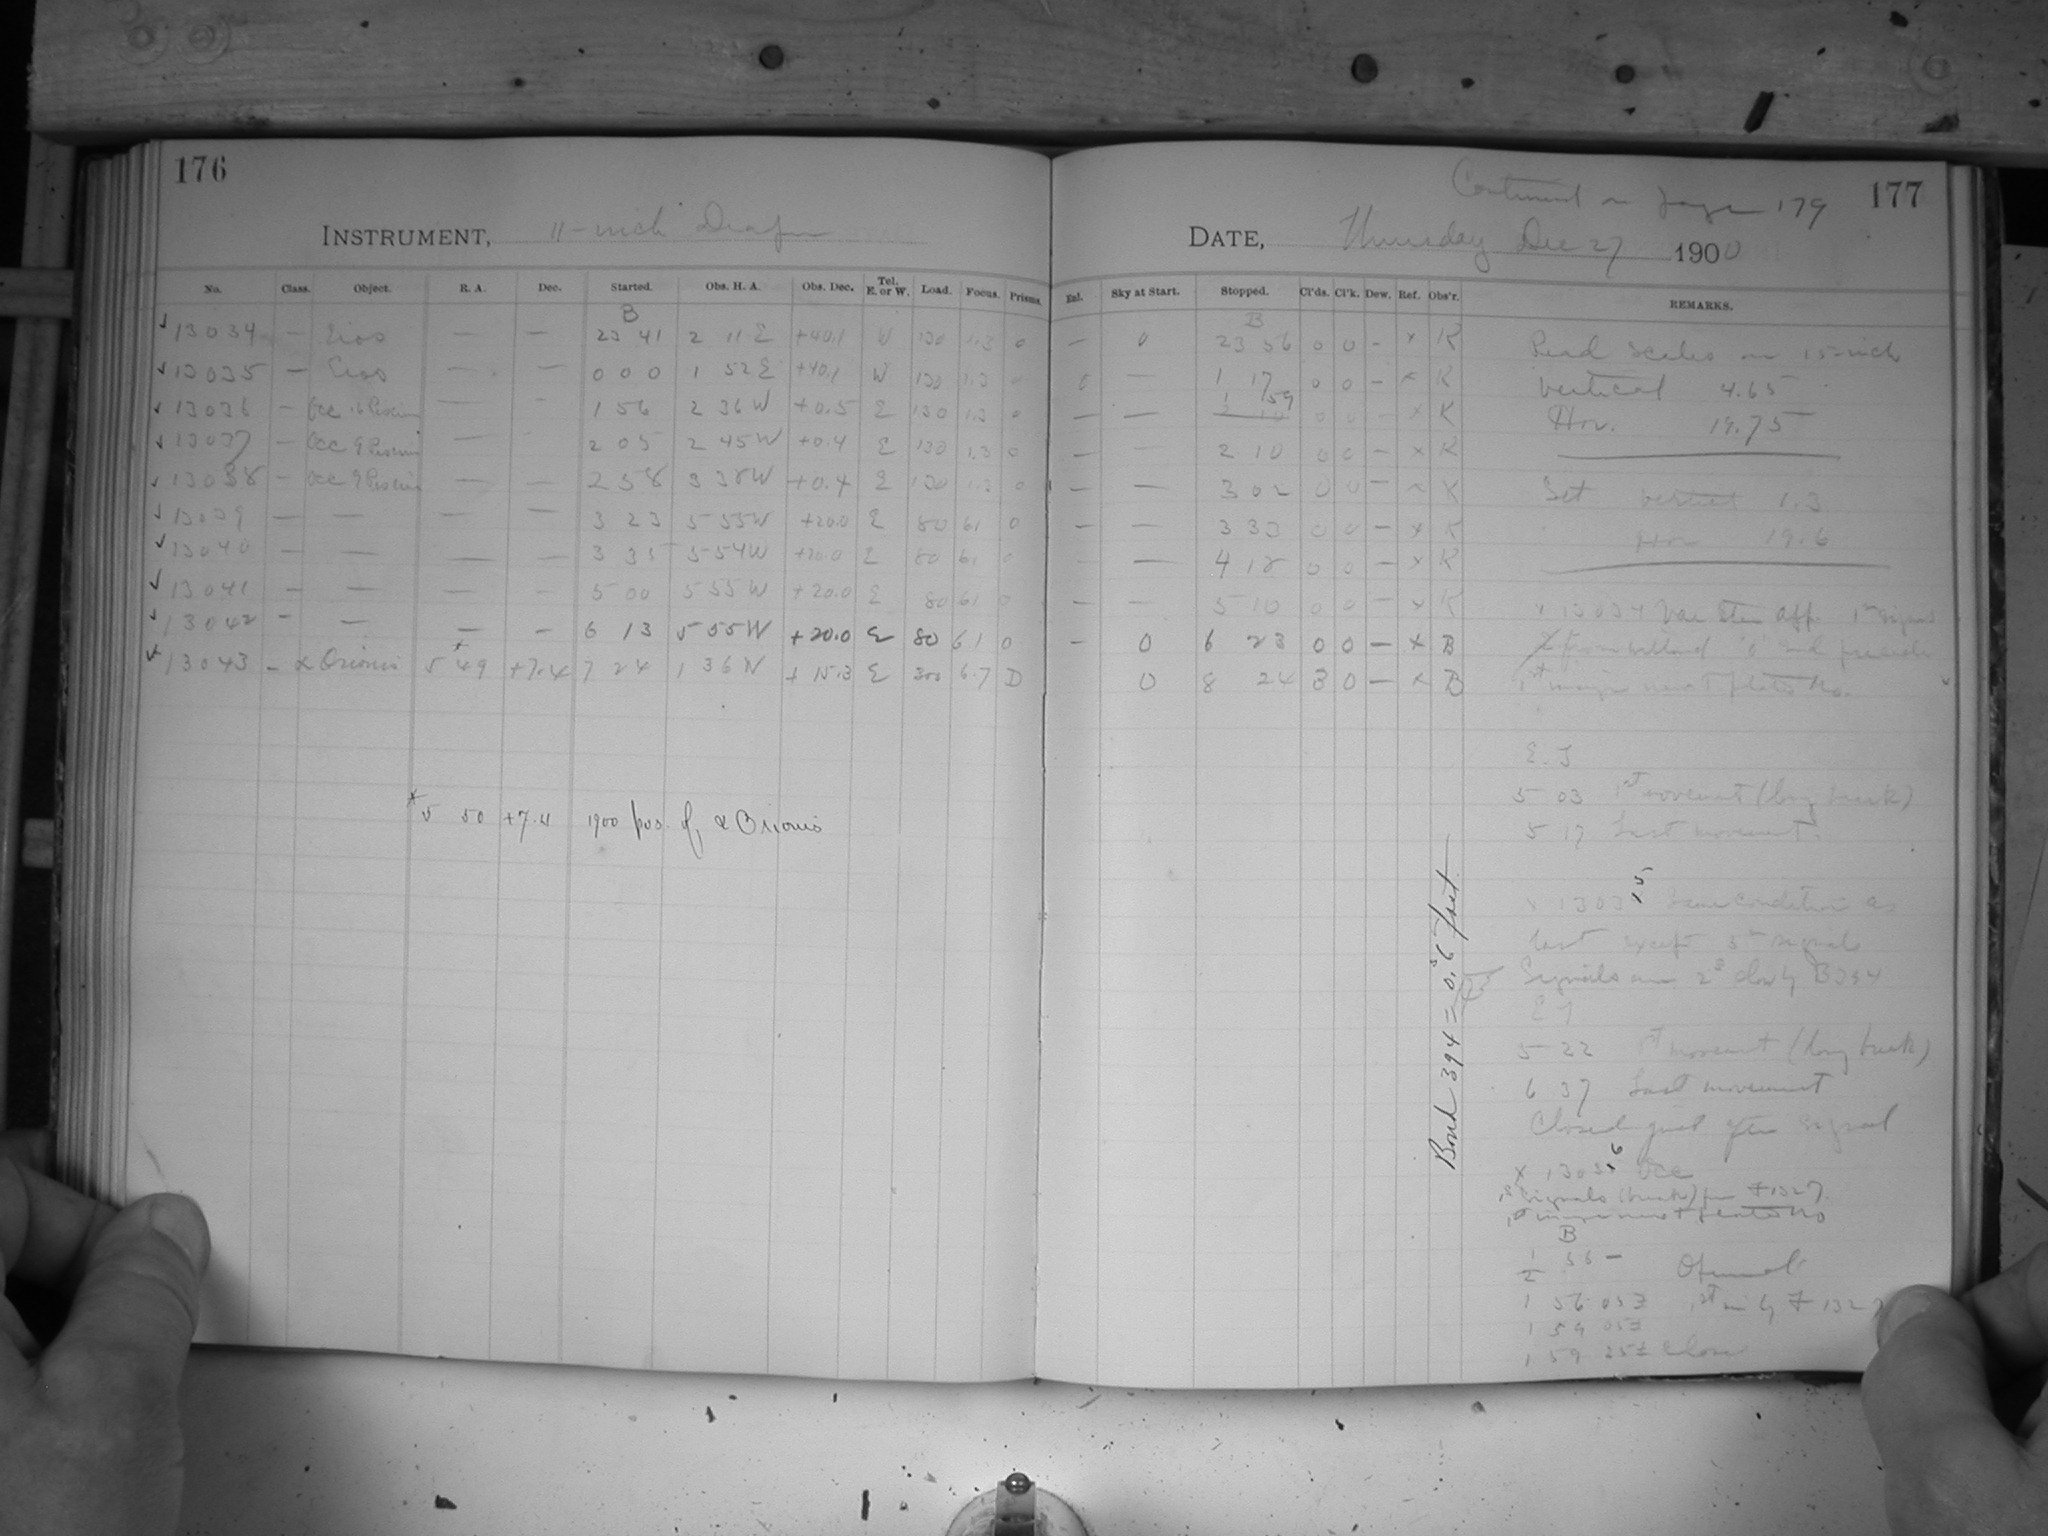 176
INSTRUMENT, 11-inch Draper
No. Class. Object. R. A. Dec. Started. Obs. H. A. Obs. Dec. Tel. E. or W. Load. Focus. Prisms.
B
13034 — Eros — — 23 41 2 11 E +40.1 W 130 1.3 0
13035 — Eros — — 0 00 1 52 E +40.1 W 130 1.3 0
13036 — Occ 16 Piscium — — 1 56 2 36 W +0.5 E 130 1.3 0
13037 — Occ 9 Piscium — — 2 05 2 45 W +0.4 E 130 1.3 0
13038 — Occ 9 Piscium — — 2 58 3 38 W +0.4 E 130 1.3 0
13039 — — — — 3 23 5 55 W +20.0 E 80 61 0
13040 — — — — 3 35 5 54 W +20.0 E 80 61 0
13041 — — — — 5 00 5 55 W +20.0 E 80 61 0
13042 — — — — 6 13 5 55 W +20.0 E 80 61 0
13043 — α Orionis 5 49 x +7.4 7 24 1 36 W + 15.3 E 300 6.7 D
x 5 50 +7.4 1900 pos. of α Orionis
Continued on page 179
177
DATE, Thursday Dec 27 1900
Enl. Sky at Start. Stopped. Cl'ds. Cl'k. Dew. Ref. Obs'r. REMARKS.
B
— 0 23 56 0 0 — x K
0 — 1 17 0 0 — x K
— — 1 59 0 0 — x K
— — 2 10 0 0 — x K
— — 3 02 0 0 — x K
— — 3 33 0 0 — x K
— — 4 18 0 0 — x K
— — 5 10 0 0 — x K
— 0 6 23 0 0 — x B
0 8 24 3 0 — x B
Read Scales on 15-inch
Vertical 4.65
Hor. 19.75
Set vertical 1.3
Hor 19.6
x 13034 Var Star App. 1st signal
from
1st image next plate No.
E. T
5 03 1st movement (long break)
5 17 Last movement.
x 13035 Same condition as
last except signals
Signals are 2s slow by B394
E T
5 22 1st movement (long break)
6 37 Last movement
Closed just after signal
x 13036 Occ
Signals (break) from F 1327.
1st image next plate No
B
1/2 55 — Opened
1 56 05± 1st min by F 1327
1 59 05±
1 59 25± Close
Bond 394 = 0.s6 fast